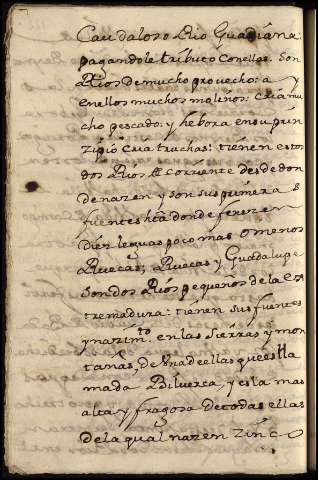 Caudaloso Rio Guadiana:
pagandole tributo con ellas. son
Rios de mucho provecho: a y
en ellos muchos molinos: cria mu
cho pescado: y hebora en su prin
zipio cria truchas: tienen estos
dos Rios corriente desde don
de nazen y son sus primeras
fuentes hta donde ferezen
diez leguas poco mas o menos
Ruecas; Ruecas y Guadalupe
son dos Rios pequeños de la Es
tremadura: tienen sus fuentes
y nazimto. en las sierras y mon
tañas, de Una de ellas que es lla
mada Bilverca, y es la mas
alta y fragosa de todas ellas
de la qual nazen zinco